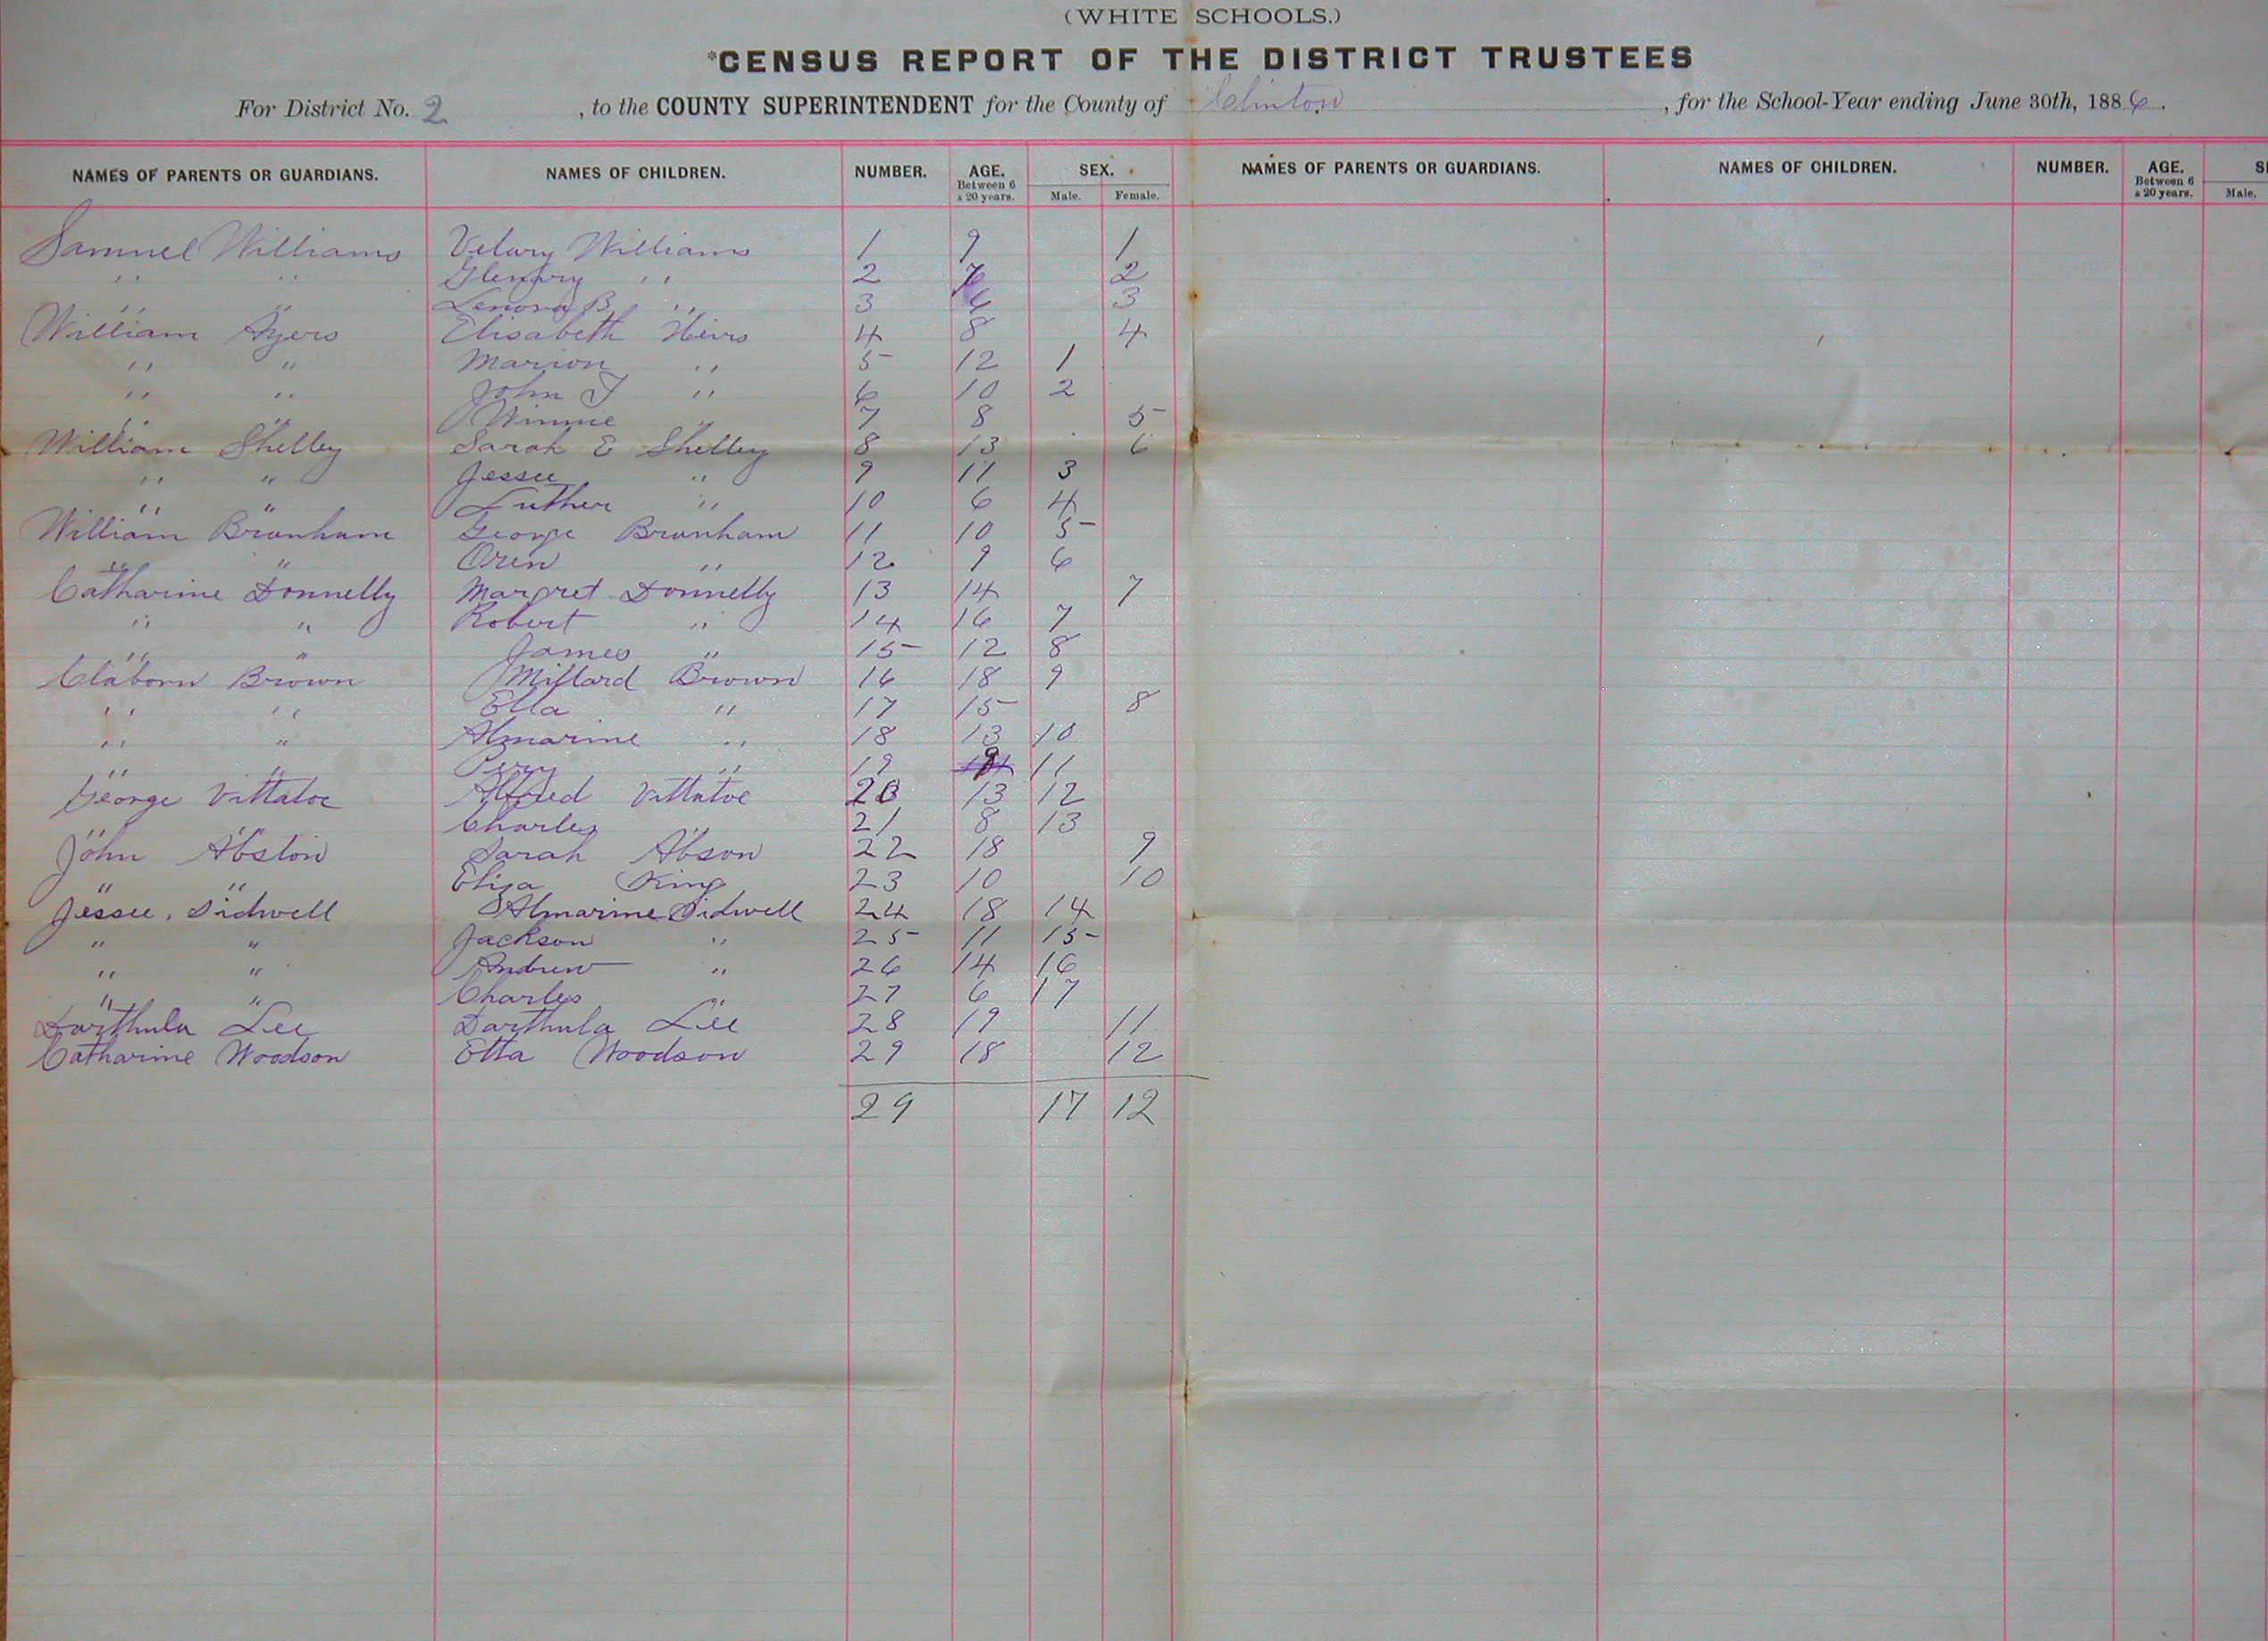 (WHITE SCHOOLS.)
*CENSUS REPORT OF THE DISTRICT TRUSTEES
For District No. 2, to the COUNTY SUPERINTENDENT for the County of Clinton, for the School-Year ending June 30th, 1886.
NAMES OF PARENTS OR GUARDIANS. NAMES OF CHILDREN. NUMBER. AGE. Between 6 & 20 years. SEX. Male. Female. NAMES OF PARENTS OR GUARDIANS. NAMES OF CHILDREN. NUMBER. AGE. Between 6 & 20 years. Male.
Samuel Williams Velary Williams 1 9 1
" " " 2 7 2
" " Lenora B " 3 6 3
William Ayers Elisabeth 4 8 4
" " Marion " 5 12 1
" " John T " 6 10 2
" " Winnie " 7 8 5
William Shelley Sarah E Shelley 8 13 6
" " Jessee " 9 11 3
" " Luther " 10 6 4
William Branham George Branham 11 10 5
" " Oren " 12 9 6
Catharine Donnelly Margret Donnelly 13 14 7
" " Robert " 14 16 7
" " James " 15 12 8
Claborn Brown Millard Brown 16 18 9
" " Ella " 17 15 8
" " Almarine " 18 13 10
" " Pery " 19 9 11
George Vittatoe Alfred Vittatoe 20 13 12
" " Charles " 21 8 13
John Abston Sarah Abson 22 18 9
" " Eliza King 23 10 10
Jessee Sidwell Almarine Sidwell 24 18 14
" " Jackson " 25 11 15
" " Andrew " 26 14 16
" " Charles " 27 6 17
Darthula Lee Darthula Lee 28 19 11
Catharine Woodson Etta Woodson 29 18 12
29 17 12